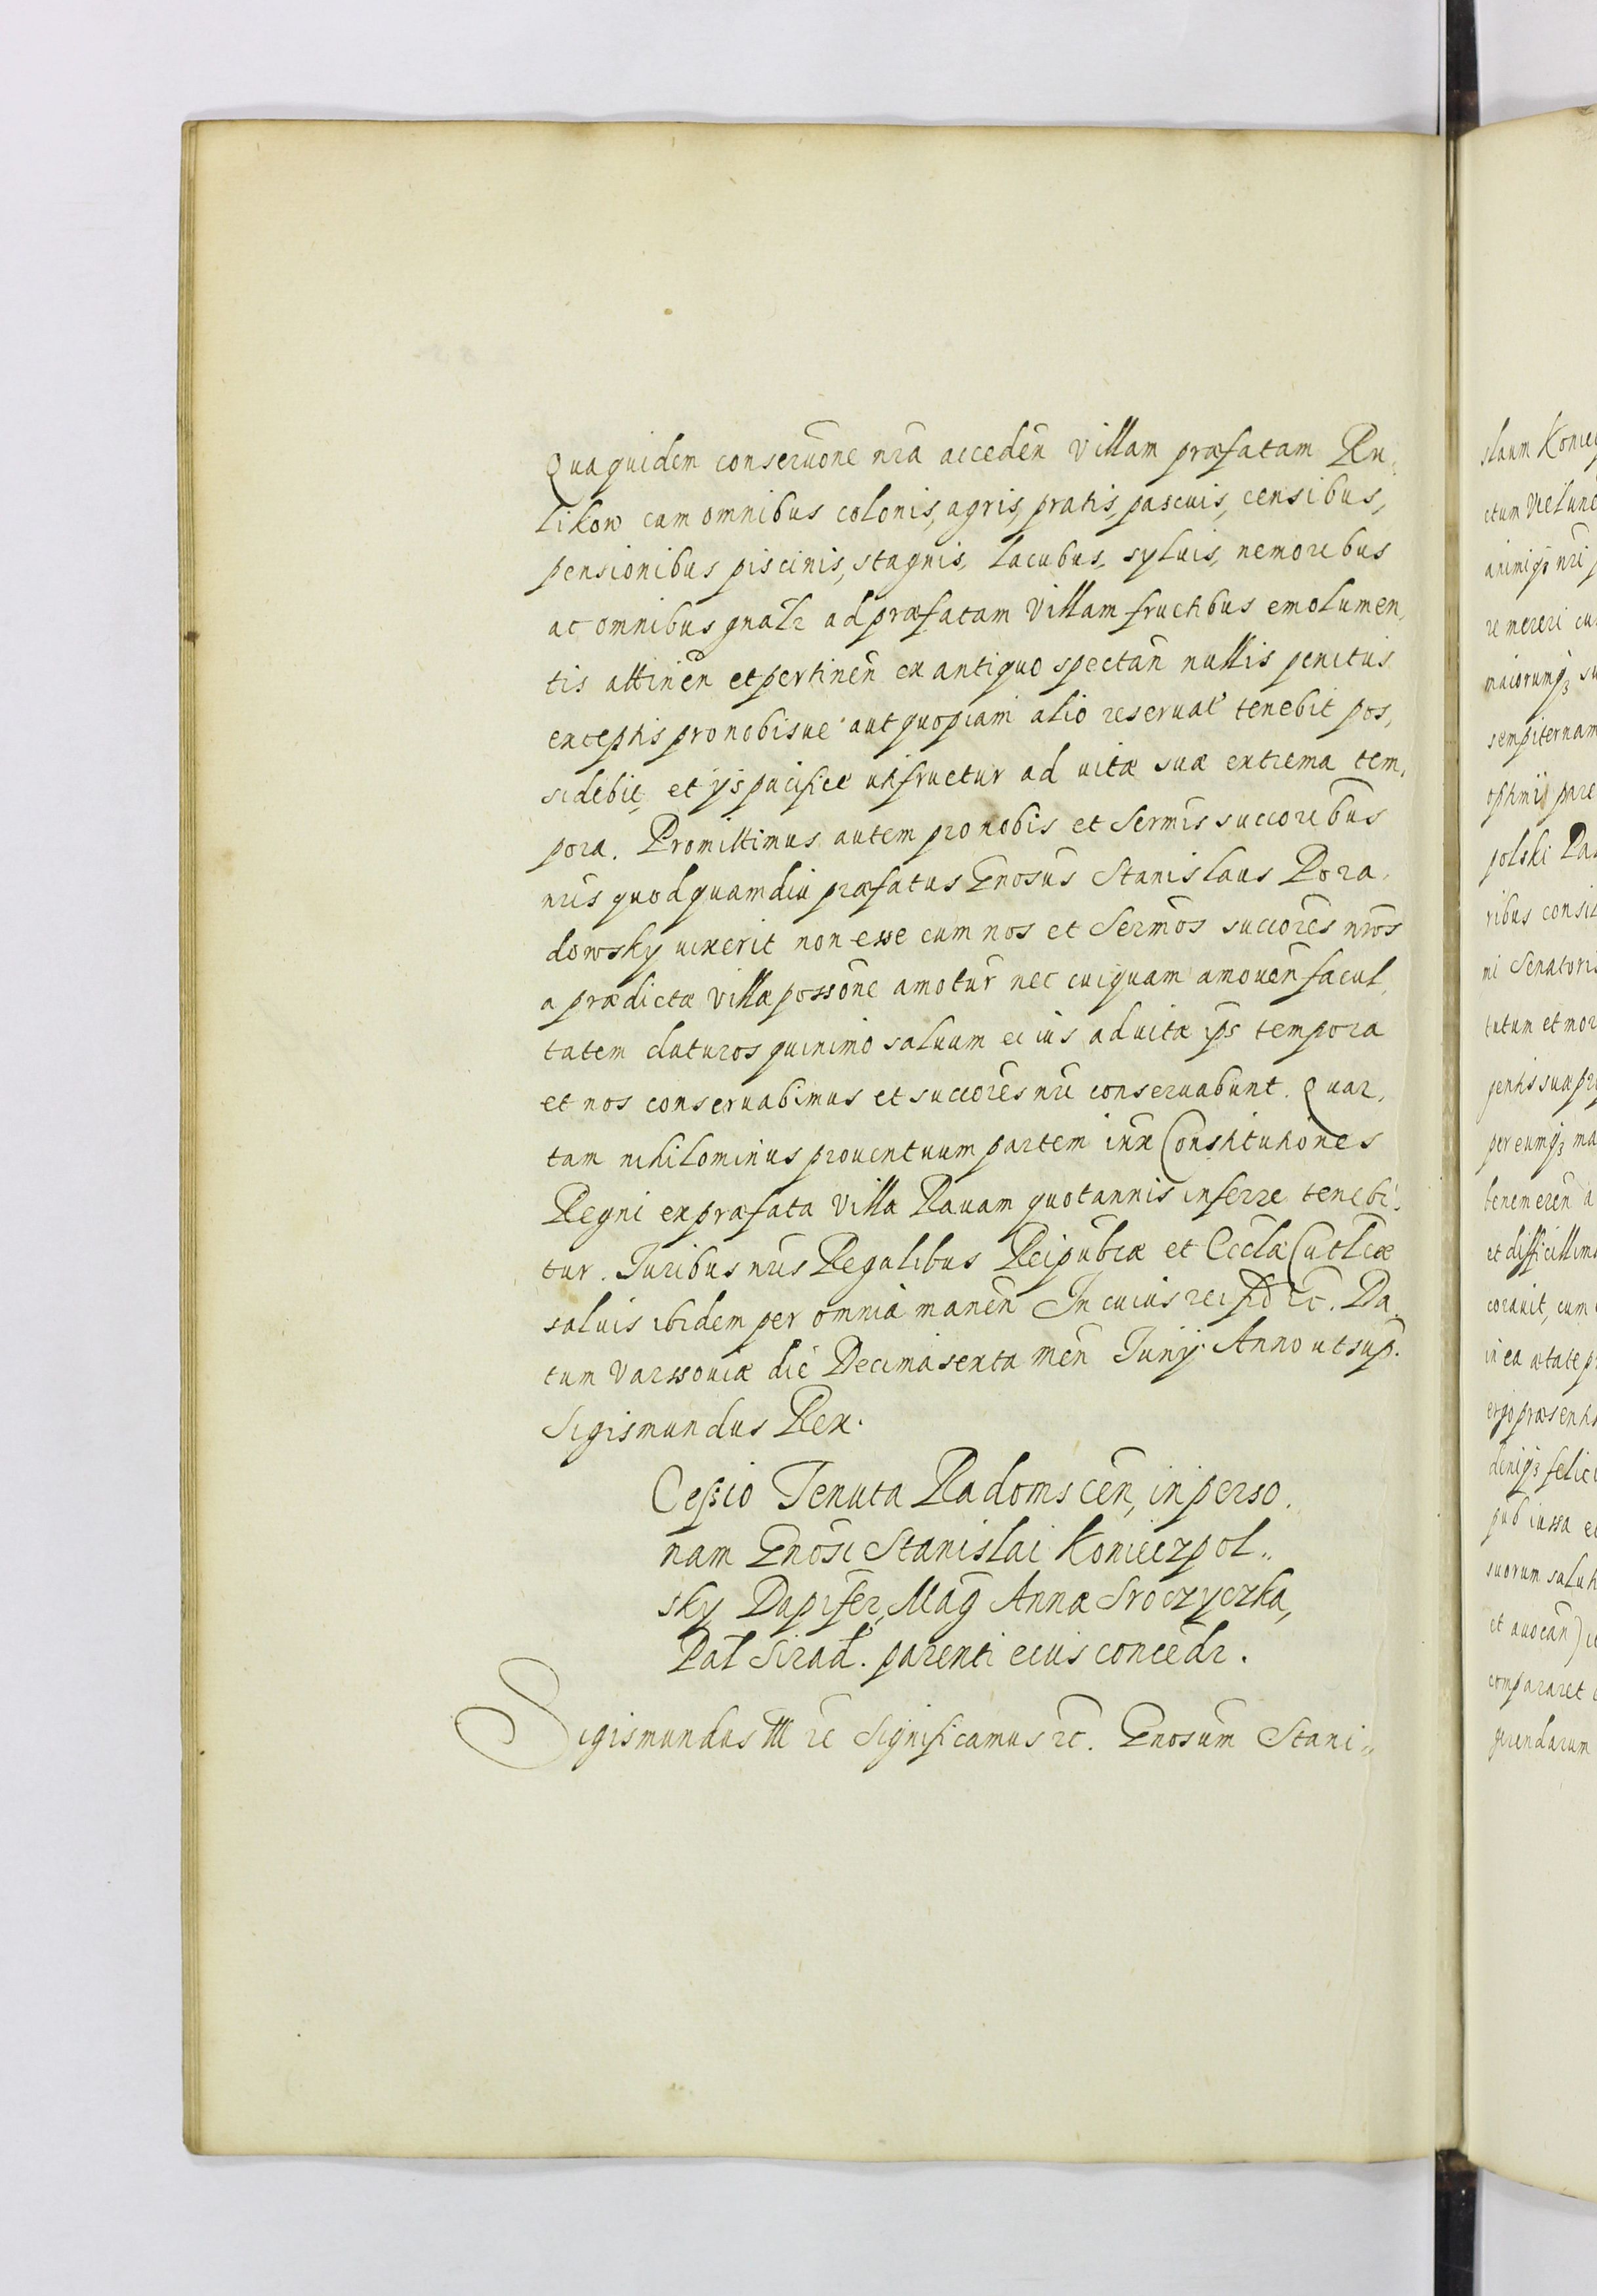 Qua quidem conseruõne nr̃a acceden̄ villam præfatam Ru,
likow cum omnibus colonis, agris, pratis, pascuis, censibus,
pensionibus piscinis, stagnis, lacubus, syluis, nemoribus
ac omnibus gnalr̃ ad præfatam villam fructibus emolumen,
tis attinen̄ et pertinen̄ ex antiquo spectan̄ nullis penitus
exceptis pro nobisue aut quopiam alio reseruat̃ tenebit pos,
sidebit, et ijs pacifice utifruetur ad uitæ suæ extrema tem,
pora. Promittimus autem pro nobis et Sermis̃ succoribus̃
nr̃is quod quamdiu præfatus Gnosus̃ Stanislaus Pora,
dowsky uixerit non esse eum nos et Sermos̃ succores̃ nr̃os
a prædictæ villæ possone̅ amotur̃ nec cuiquam amouen̄ facul,
tatem daturos quinimo saluum ei ius ad uitæ ips̃ tempora
et nos conseruabimus et succores̃ nr̃i conseruabunt. Quar,
tam nihilominus prouentuum partem iux̃ Constitutiones
Regni ex præfata villa Rauam quotannis inferre tenebi,
tur. Juribus nr̃is Regalibus Reipub̃cæ et Eccl̃æ Cathcæ̃
saluis ibidem per omnia manen̄ In cuius rei fid̃ ꝛc̃. Da,
tum Varssouiæ die Decima sexta men̄ Junij Anno ut sup̃.
Sigismundus Rex.
Cessio Tenuta Radomscen̄, in perso,
nam Gnosi̅ Stanislai Koniecpol,,
sky Dapifer̃, Mag̃ Annæ Sroczyczka,
Pal̃ Sirad̃. parenti eius concedr̃.
Sigismundus III ꝛc̃ Significamus ꝛc̃. Gnosum̃ Stani,,
slaum Koniec
ctum Vielune
animiqȝ nr̃i p
re mereri cu
maiorumqȝ su
sempiternam
optimij pare
polski Pa
ribus consil
ni Senatoris
tutum et mor
gentis suæ pr
per eumqȝ ma
benemeren̄ a
et difficillim
corauit, cum
in ea ætate p
ergo præsenti
diniqȝ felici
pub̃ iussa e
suorum salut
et auocan̄)
compararet
gerendarum